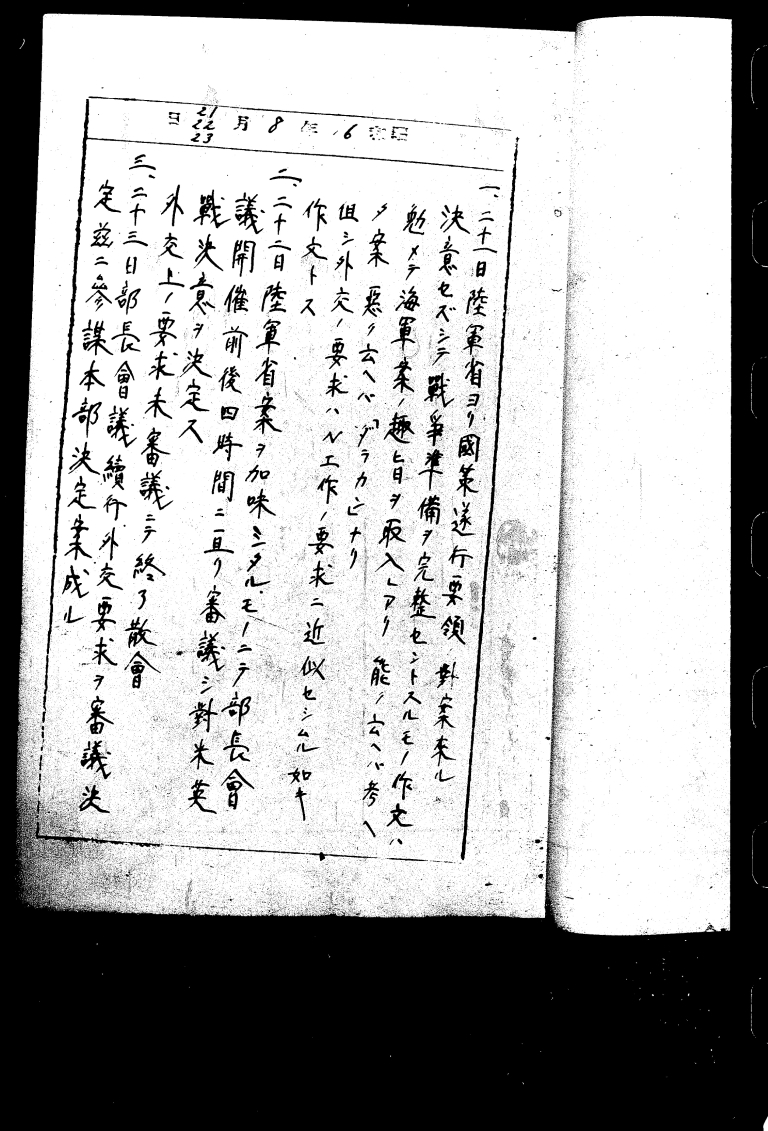 昭和16年8月21 22 23日
一、二十一日陸軍省ヨリ國策遂行要領ノ對案来ル
決意セズシテ戰爭準備ヲ完整セントスルモノ作文ハ
勉メテ海軍案ノ趣旨ヲ取入レアリ 能ク云ヘバ考ヘ
タ案 惡ク云ヘバ「グラカシ」ナリ
但シ外交ノ要求ハN工作ノ要求ニ近似セシムル如キ
作文トス
二、二十二日陸軍省案ヲ加味シタルモノニテ部長會
議開催前後四時間ニ亘リ審議シ對米英
戰決意ヲ決定ス
外交上ノ要求未審議ニテ終了散會
三、二十三日部長會議續行外交要求ヲ審議決
定玆ニ參謀本部決定案成ル